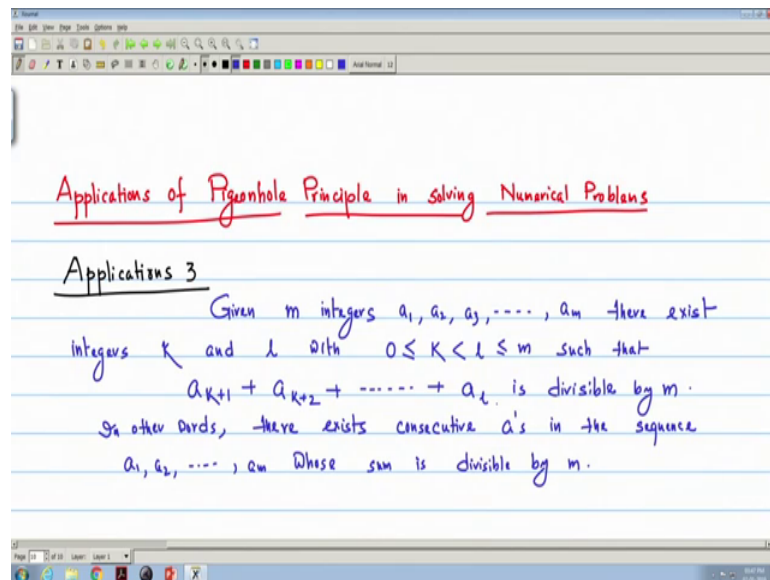 Journal
File Edit View Page Tools Options Help
Arial Normal 12
Applications of Pigeonhole Principle in solving Numerical Problems
Applications 3
Given m integers a₁, a₂, a₃, ----, aₘ there exist
integers K and l with 0 ≤ K < l ≤ m such that
aₖ₊₁ + aₖ₊₂ + ------ + aₗ is divisible by m.
In other words, there exists consecutive a's in the sequence
a₁, a₂, ----, aₘ whose sum is divisible by m.
Page 10 of 10 Layer: Layer 1